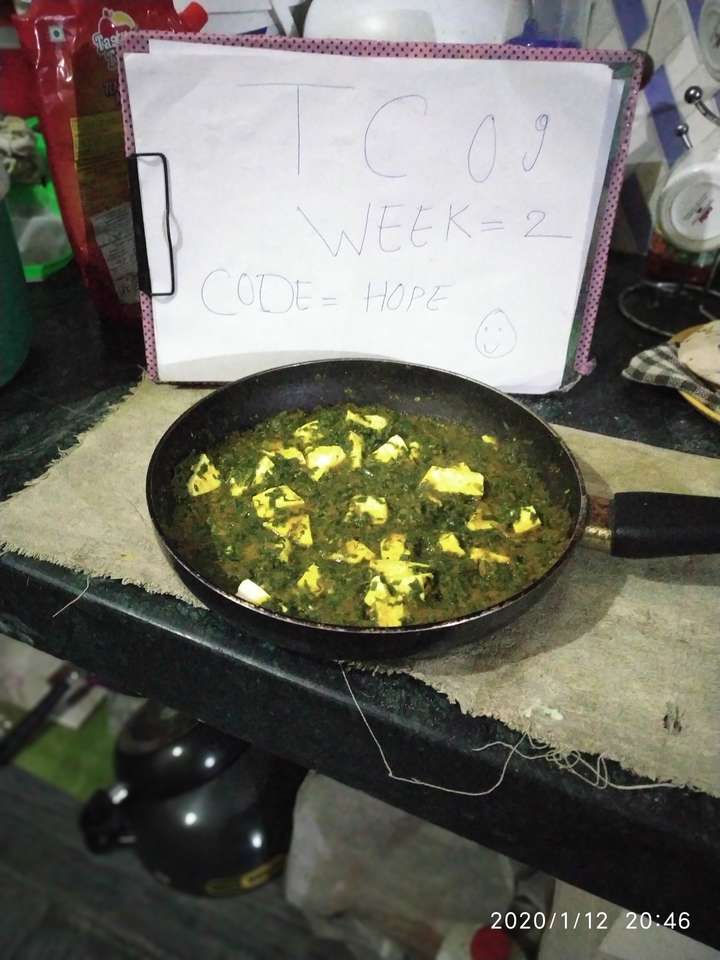 Tas
TC 09
WEEK = 2
CODE = HOPE
2020/1/12 20:46